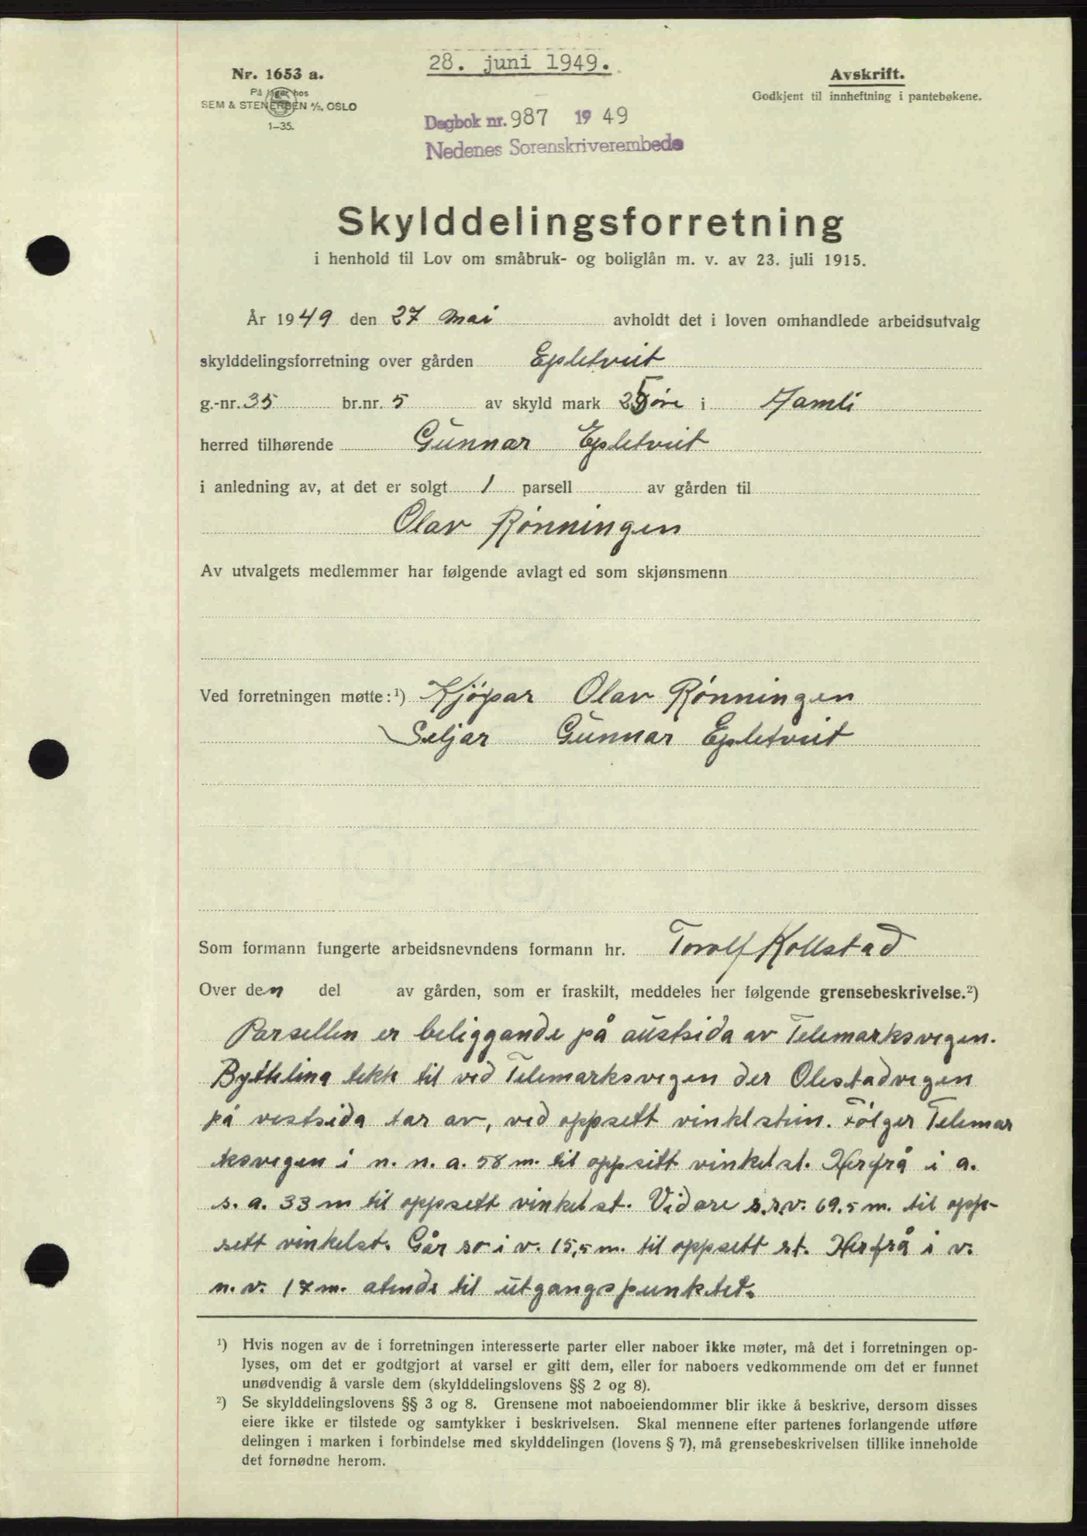 28. juni 1949.
Nr. 1653 a.
På lager hos
SEM & STENERSEN A/S, OSLO
1-35.
Avskrift.
Godkjent til innheftning i pantebøkene.
Dagbok nr. 987 1949
Nedenes Sorenskriverembede
Skylddelingsforretning
i henhold til Lov om småbruk- og boliglån m. v. av 23. juli 1915.
År 1949 den 27 Mai avholdt det i loven omhandlede arbeidsutvalg
skylddelingsforretning over gården Epletveit
g.-nr. 35 br.nr. 5 av skyld mark 25 øre i Åamli
herred tilhørende Gunnar Epletveit
i anledning av, at det er solgt 1 parsell av gården til
Olav Rønningen
Av utvalgets medlemmer har følgende avlagt ed som skjønsmenn
Ved forretningen møtte:¹) Kjøpar Olav Rønningen
Seljar Gunnar Epletveit
Som formann fungerte arbeidsnevndens formann hr. Torolf Kollstad
Over den del av gården, som er fraskilt, meddeles her følgende grensebeskrivelse.²)
Parsellen er beliggande på austsida av Telemarksvegen.
Bytelina tekk til ved Telemarksvegen der Olestadvegen
på vestsida tar av, ved oppsett vinkelstein. Følger Telemar
ksvegen i n. n. a. 58 m. til oppsett vinkelst. Herfrå i a.
s. a. 33 m til oppsett vinkelst. Vidare s.s.v. 69.5 m. til opp-
sett vinkelst. Går so i v. 15,5 m. til oppsett st. Herfrå i v.
n. v. 17 m. atende til utgangspunktet.
¹) Hvis nogen av de i forretningen interesserte parter eller naboer ikke møter, må det i forretningen op-
lyses, om det er godtgjort at varsel er gitt dem, eller for naboers vedkommende om det er funnet
unødvendig å varsle dem (skylddelingslovens §§ 2 og 8).
²) Se skylddelingslovens §§ 3 og 8. Grensene mot naboeiendommer blir ikke å beskrive, dersom disses
eiere ikke er tilstede og samtykker i beskrivelsen. Skal mennene efter partenes forlangende utføre
delingen i marken i forbindelse med skylddelingen (lovens § 7), må grensebeskrivelsen tillike inneholde
det fornødne herom.